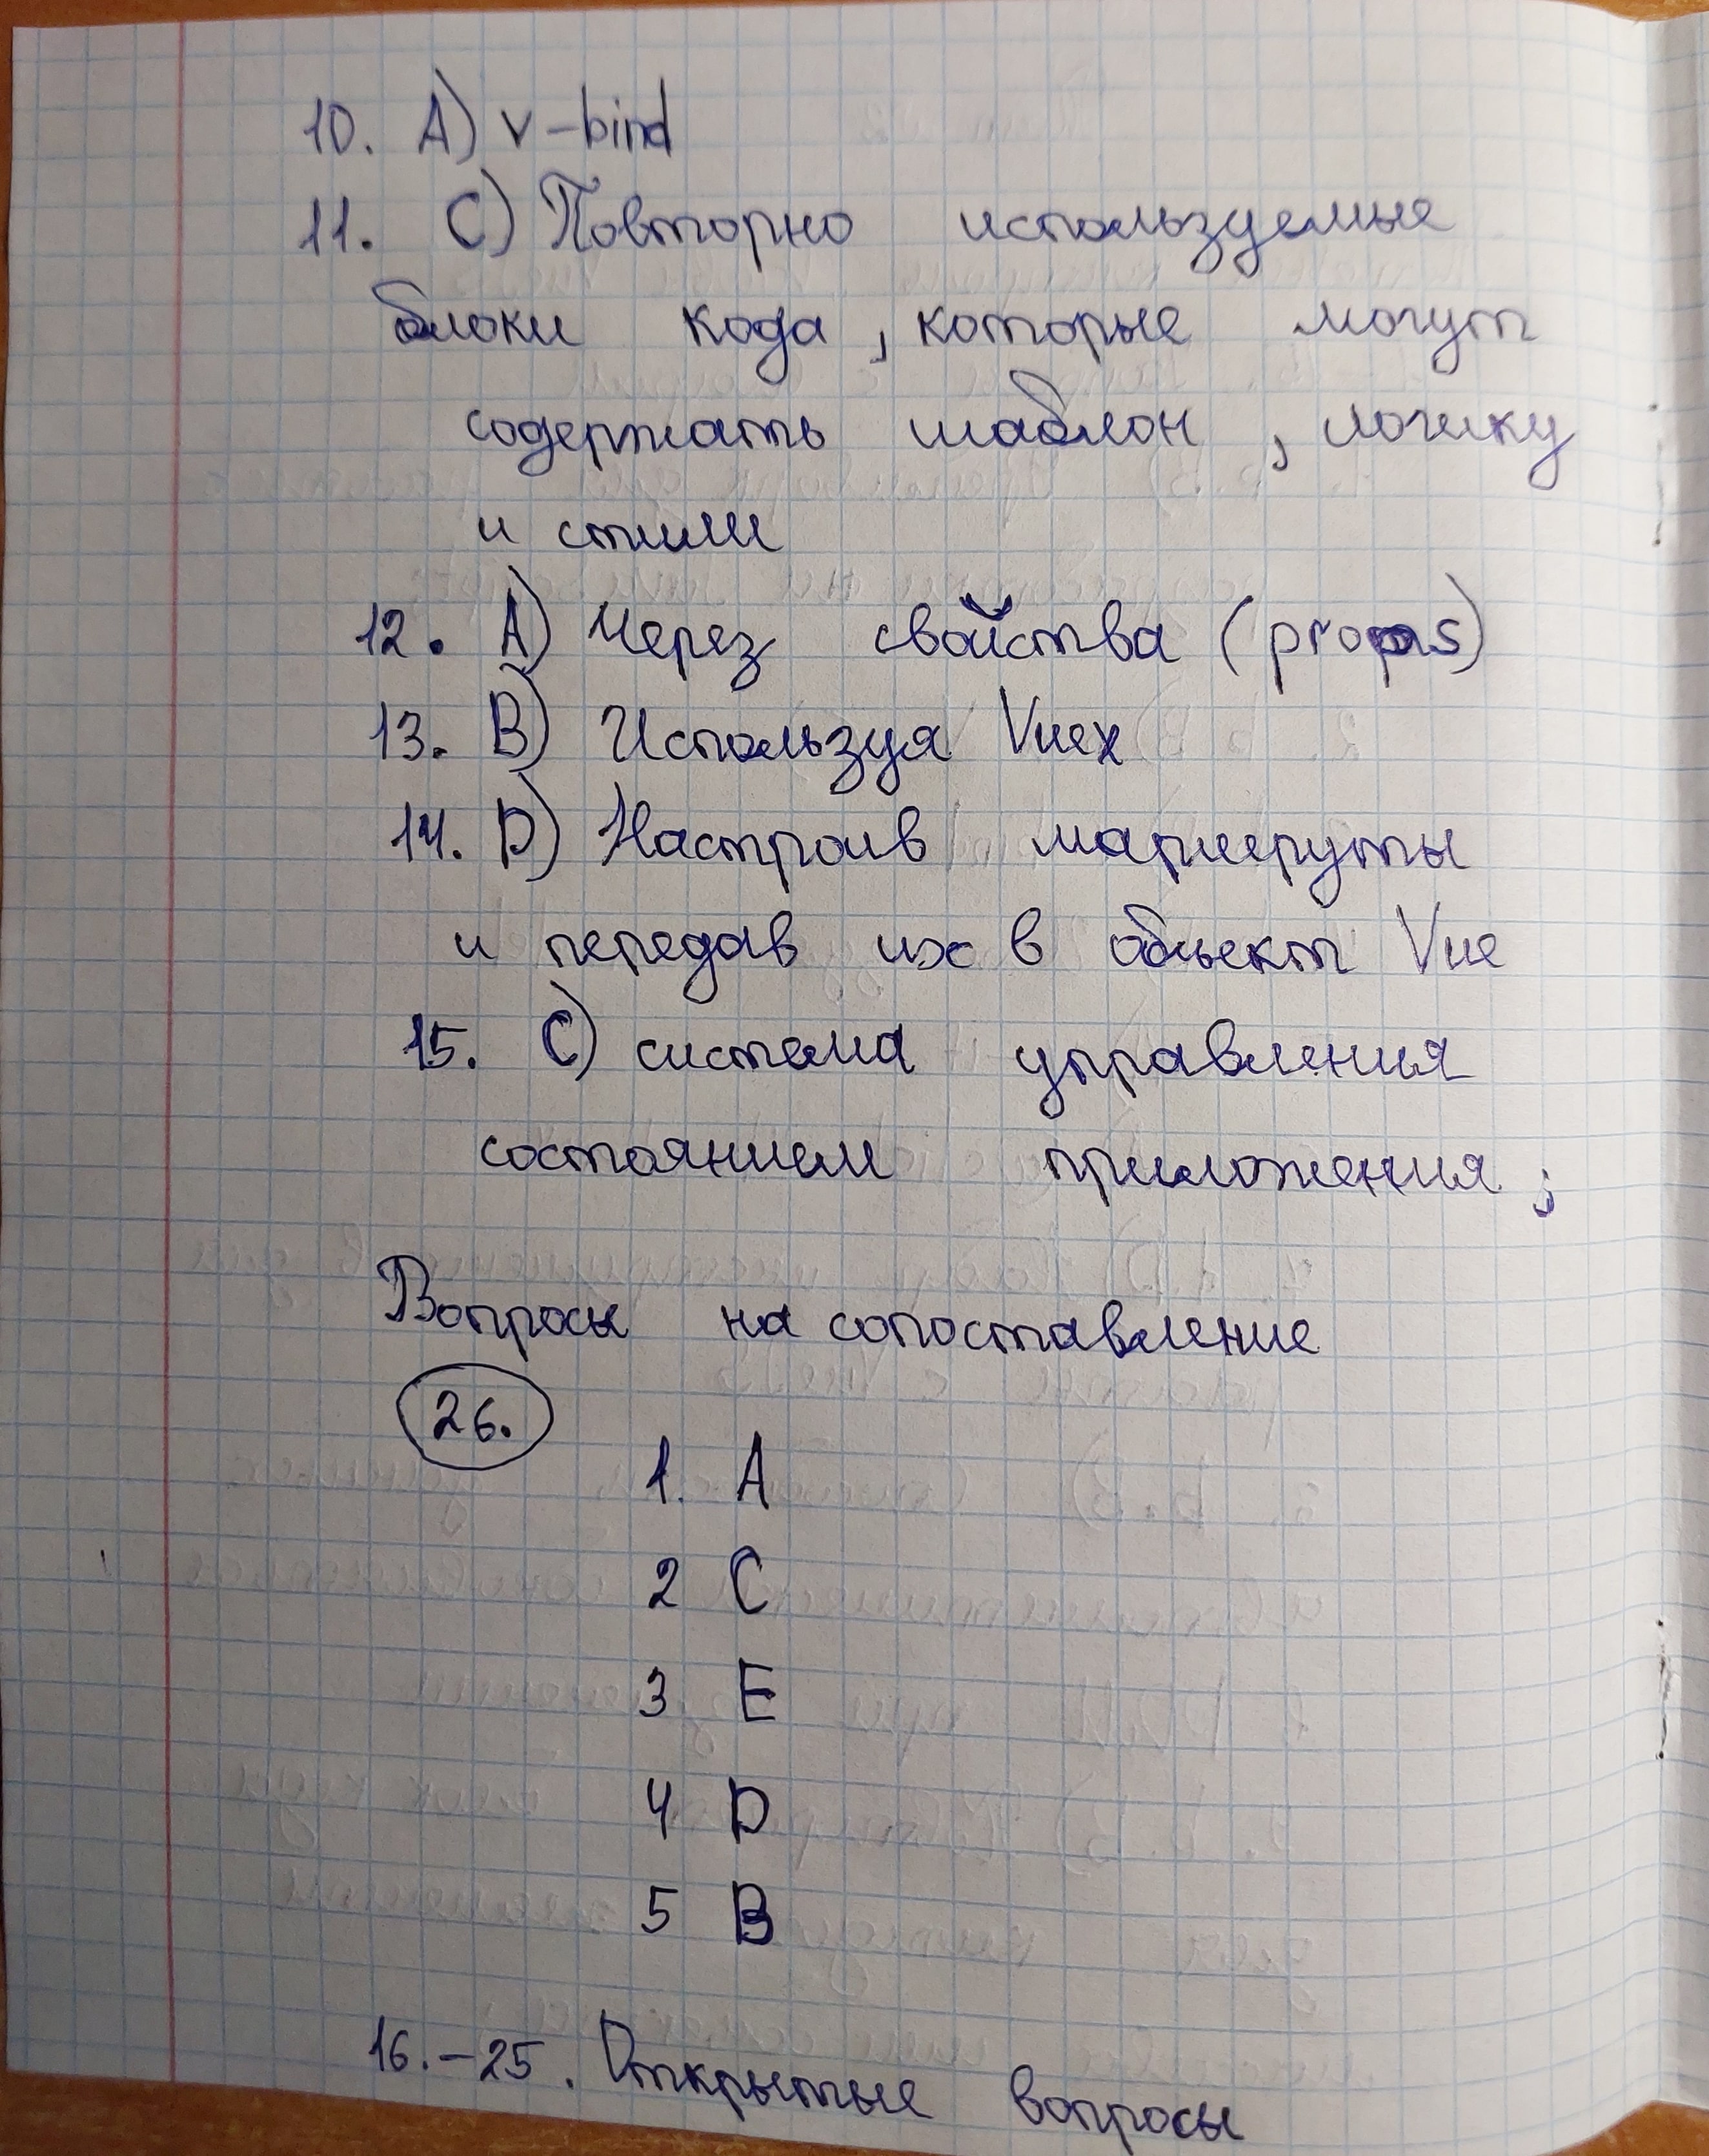 10. A) v-bind
11. C) Повторно используемые
блоки кода, которые могут
содержать шаблон, логику
и стили
12. A) Через свойства (props)
13. B) Используя Vuex
14. D) Настроив маршруты
и передав их в объект Vue
15. C) система управления
состоянием приложения;
Вопросы на сопоставление
26.
1. A
2 C
3 E
4 D
5 B
16.-25. Открытые вопросы